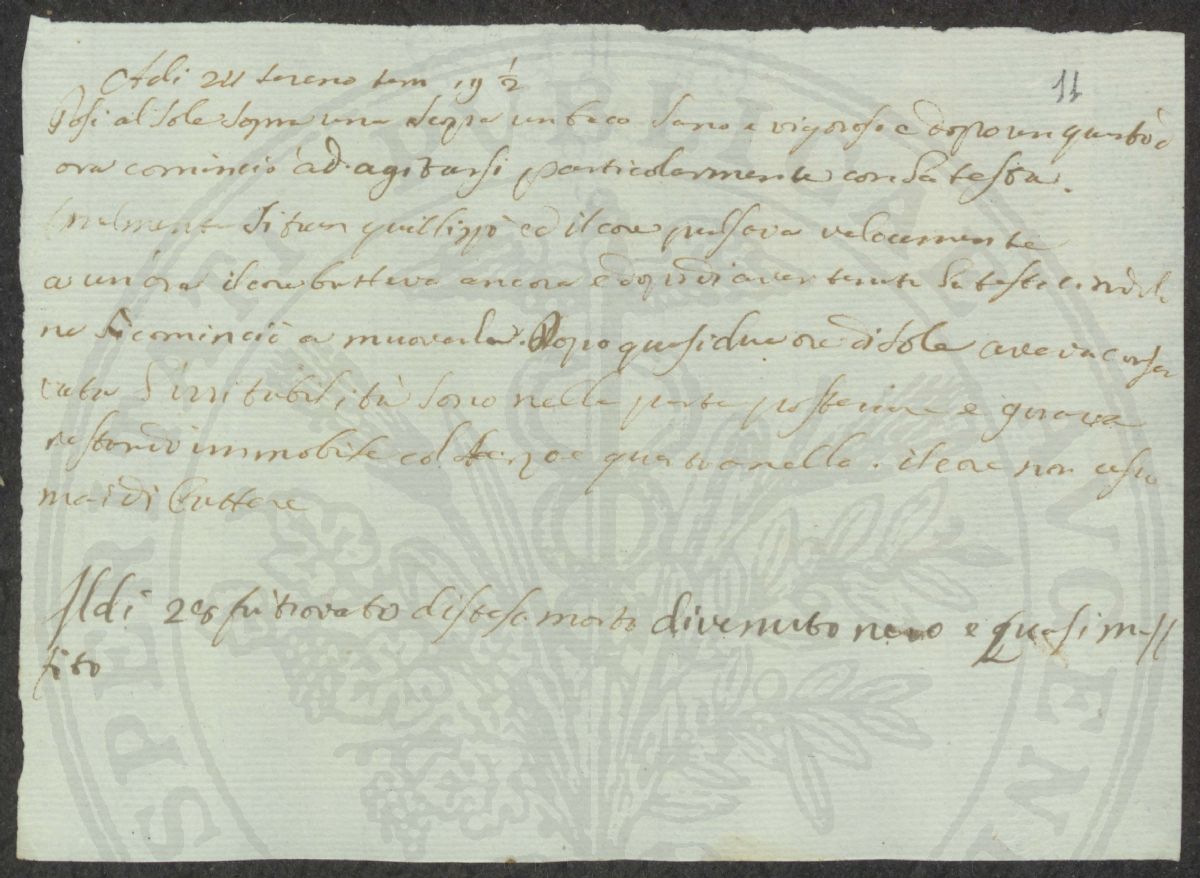 Adi 24 sereno term 19 1/2
11
Posi al Sole sopra una un baco Sano e vigoroso e dopo un quarto d
ora cominciò ad agitarsi particolarmente con la testa.
Finalmente si tranquillizzò ed il core pulsava velocemente
a un'ora il core batteva ancora e dopo di aver tenuto la testa
ne Ricominciò a muoverla. Dopo quasi due ore di sole aveva conser
vata l'irritabilità solo nella parte posteriore e girava
restando immobile col terzo e quarto anello. il core non cessò
mai di battere
Il di 28 fu trovato disteso morto divenuto nero e quasi
SPERANTIS PUBLICAE